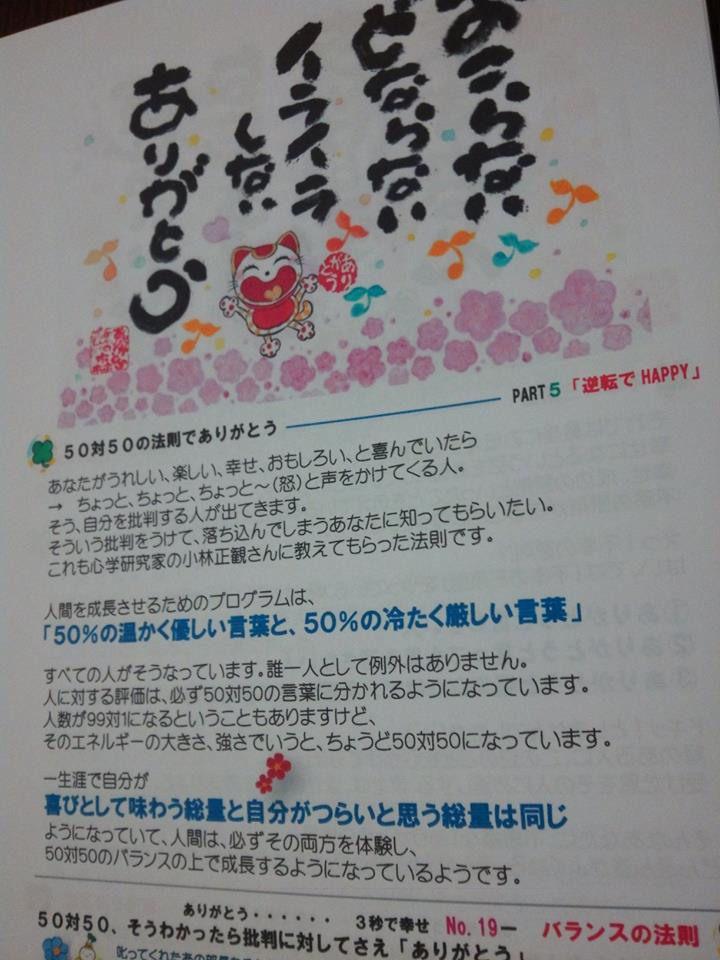 おこらない
どならない
イライラ
しない
ありがとう
ありがとう
PART5「逆転でHAPPY」
50対50の法則でありがとう
あなたがうれしい、楽しい、幸せ、おもしろい、と喜んでいたら
→ ちょっと、ちょっと、ちょっと〜(怒)と声をかけてくる人。
そう、自分を批判する人が出てきます。
そういう批判をうけて、落ち込んでしまうあなたに知ってもらいたい。
これも心学研究家の小林正観さんに教えてもらった法則です。
人間を成長させるためのプログラムは、
「50%の温かく優しい言葉と、50%の冷たく厳しい言葉」
すべての人がそうなっています。誰一人として例外はありません。
人に対する評価は、必ず50対50の言葉に分かれるようになっています。
人数が99対1になるということもありますけど、
そのエネルギーの大きさ、強さでいうと、ちょうど50対50になっています。
一生涯で自分が
喜びとして味わう総量と自分がつらいと思う総量は同じ
ようになっていて、人間は、必ずその両方を体験し、
50対50のバランスの上で成長するようになっているようです。
ありがとう・・・・・・ 3秒で幸せ No.19ー バランスの法則
50対50、そうわかったら批判に対してさえ「ありがとう」
叱ってくれたあの部長